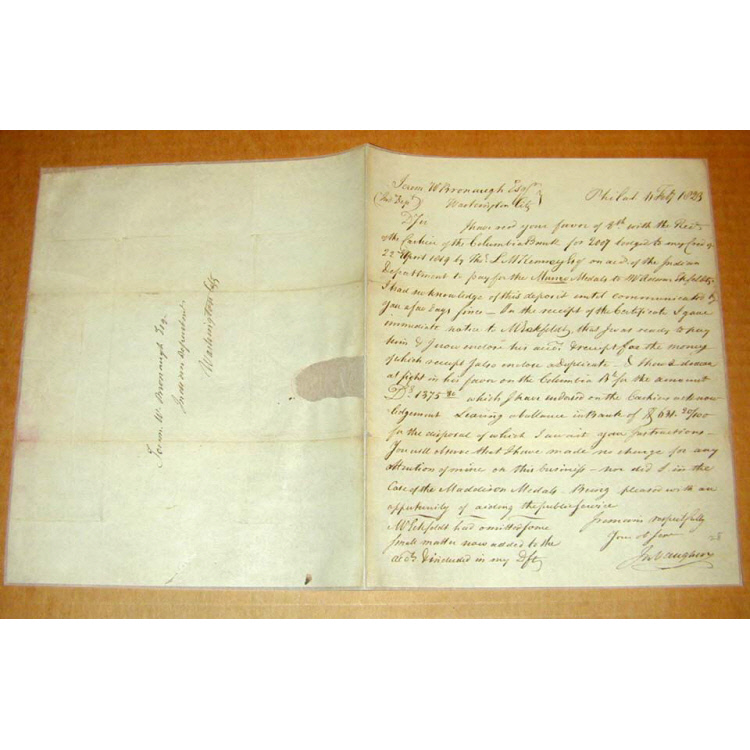 Jerem W. Bronaugh Esq.
Indian Department
Washington City
Jerem W Bronaugh Esqr
Washington City
(Ind Dept)
Philad 4 Feb 1823
D Sir
I have rec'd your favor of 2th with the Rect
of the Cashier of the Columbia Bank for 2007 lodged to my Credit
22 April 1819 by Tho L. McKenney Esq on acct of the Indian
Department to pay for the Munro Medals to
I had no knowledge of this deposit until communicated by
you a few days since – On the receipt of the Certificate I gave
immediate notice to Mr Eckfeldt, that I was ready to pay
him & I now enclose his acct & receipt for the money
of which receipt I also enclose a Duplicate – & I have drawn
at sight in his favor on the Columbia Bk for the amount
Ds 1375 which I have endorsed on the Cashiers acknow
ledgement Leaving a ballance in Bank of $ 631. /100
for the disposal of which I await your Instructions –
You will observe that I have made no charge for any
attention of mine on this business – nor did I in the
Case of the Maddison Medals – Being pleased with an
opportunity of aiding the public service
I remain respectfully
Your
Jn Vaughan
Mr Eckfeldt had omitted some
small matter now added to the
acct & included in my Dft